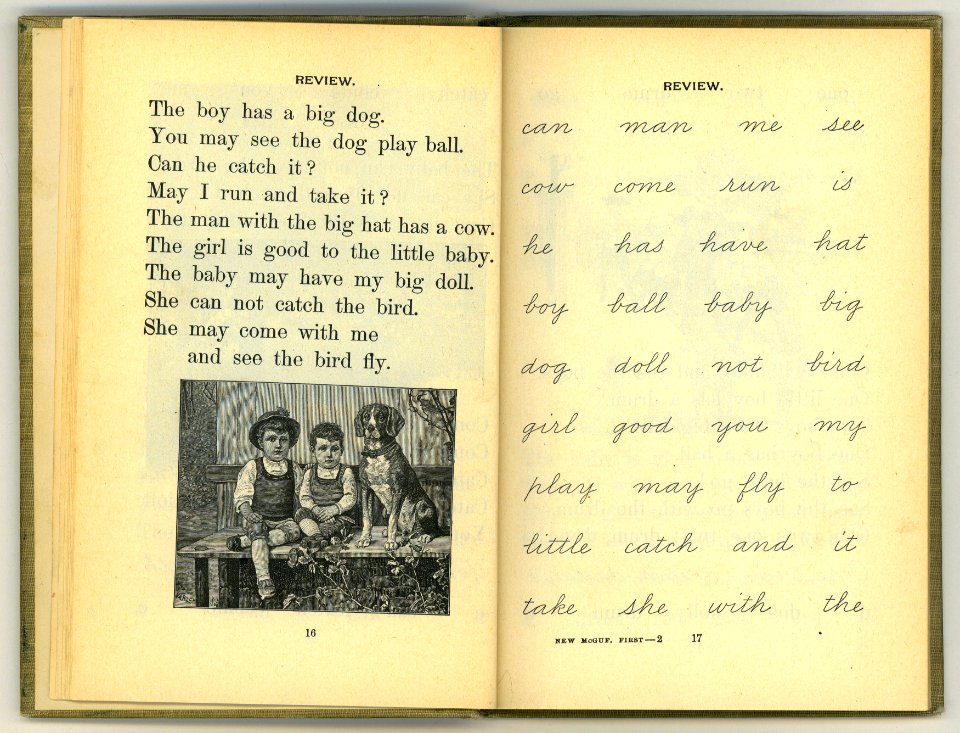 REVIEW.
The boy has a big dog.
You may see the dog play ball.
Can he catch it?
May I run and take it?
The man with the big hat has a cow.
The girl is good to the little baby.
The baby may have my big doll.
She can not catch the bird.
She may come with me
and see the bird fly.
16
REVIEW.
can man me see
cow come run is
he has have hat
boy ball baby big
dog doll not bird
girl good you my
play may fly to
little catch and it
take she with the
NEW McGUF. FIRST—2 17